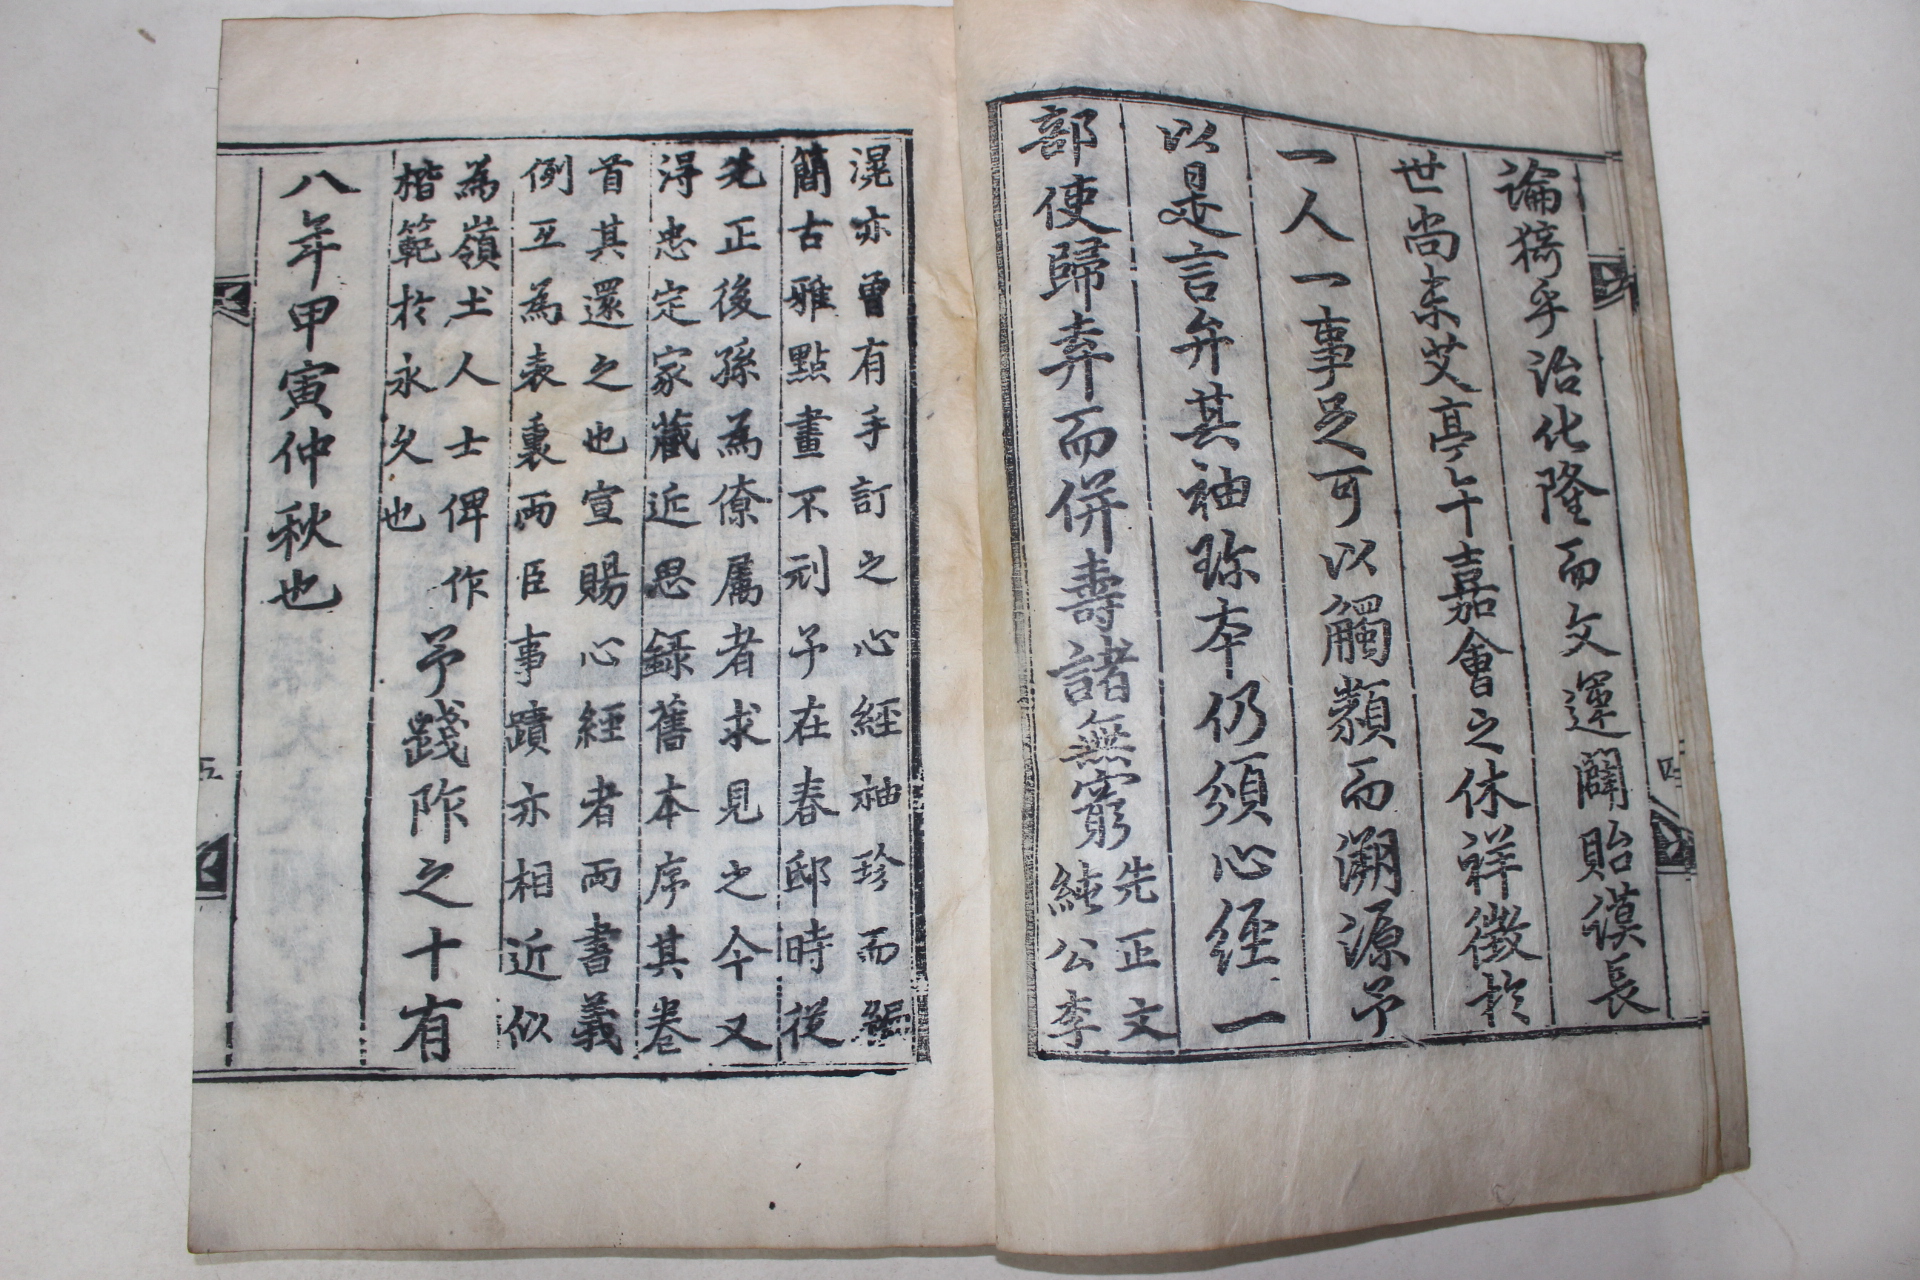 論猗乎治化隆而文運闢貽謨長
世尚未艾亭午嘉會之休祥徵於
一人一事足可以觸類而溯源予
以是言弁其袖珍本仍須心經一
部使歸弆而併壽諸無窮
先正文
純公李
滉亦曾有手訂之心經袖珍而編
簡古雅點畫不刓予在春邸時從
先正後孫為僚屬者求見之今又
淂忠定家藏近思錄舊本序其卷
首其還之也宣賜心經者兩書義
例互為表裏兩臣事蹟亦相近似
為嶺圡人士俾作
楷範於永久也
予踐阼之十有
八年甲寅仲秋也
四
五